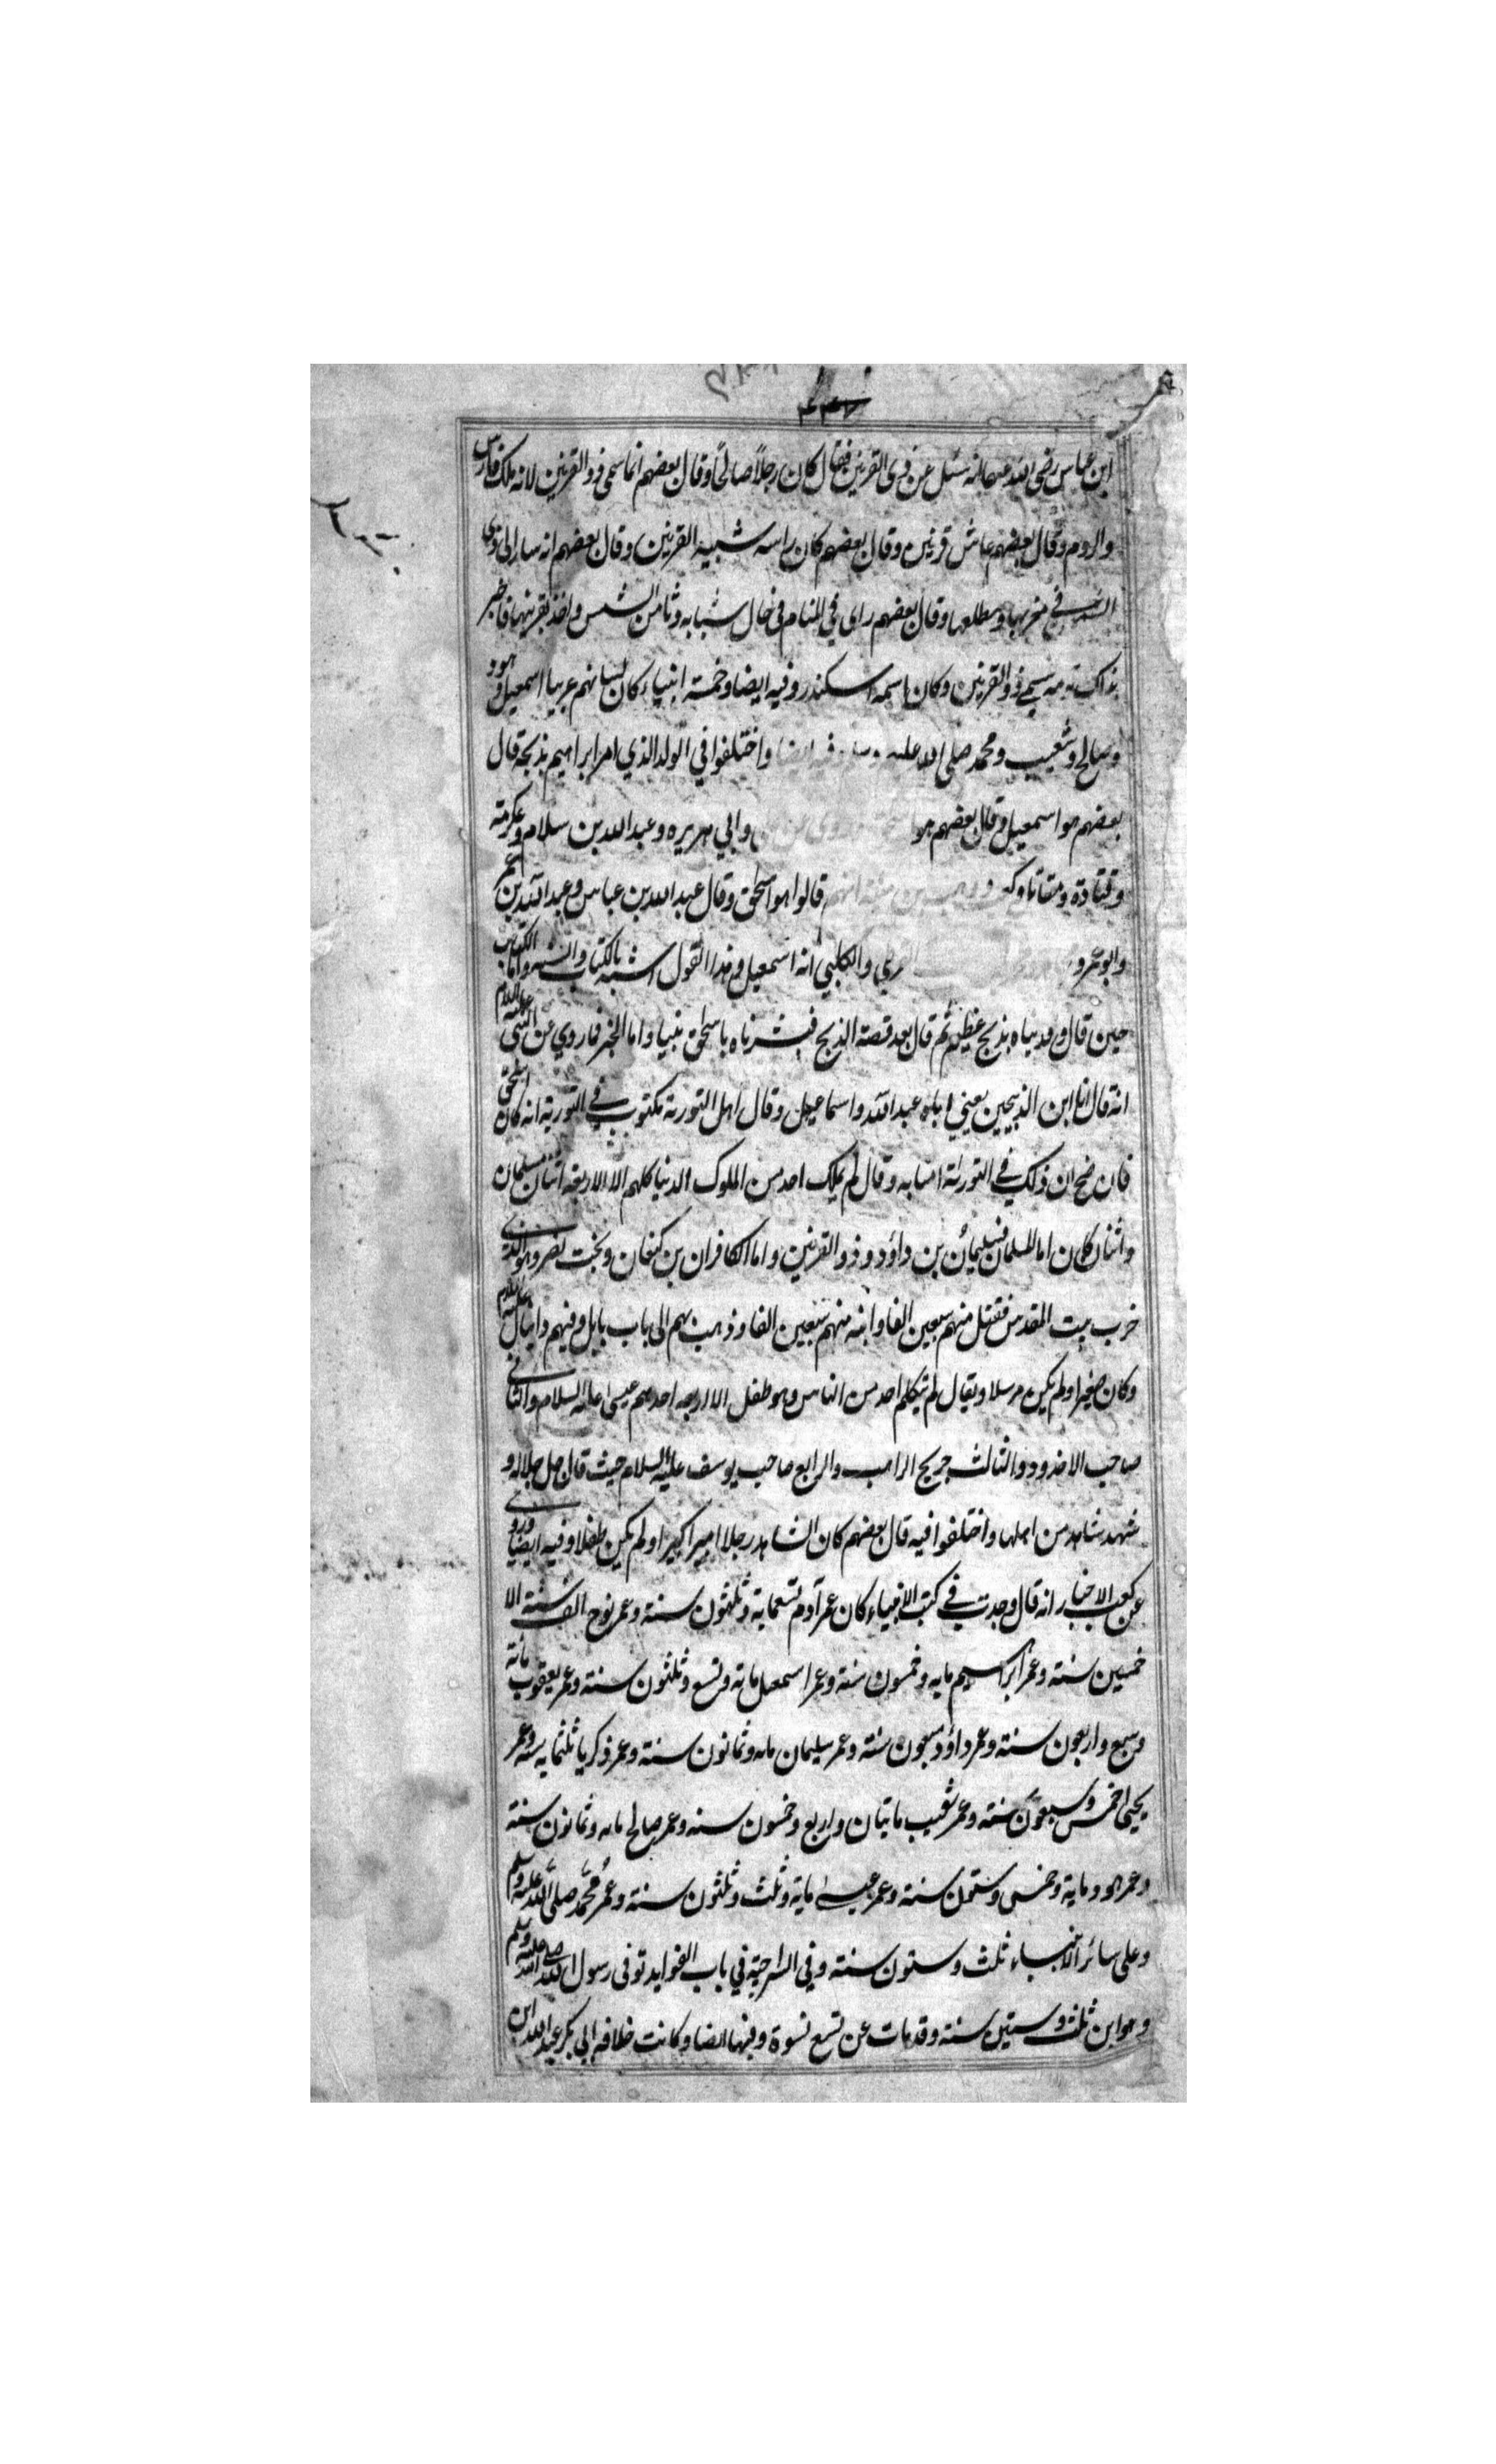 ابن عباس رضى الله عنهما انه سئل عن ذى القرنين فقال كان رجلاً صالحاً وقال بعضهم انما سمى ذو القرنين لانه ملك فارس
والروم وقال بعضهم عاش قرنين وقال بعضهم كان راسه شبيه القرنين وقال بعضهم انه سار الى
الشمس فى مغربها ومطلعها وقال بعضهم راى فى المنام فى حال شبابه دنا من الشمس واخذ بقرنيها فاخبر
بذلك قومه سمى ذو القرنين وكان اسمه اسكندر وفيه ايضا وخمسة انبياء كان لسانهم عربيا اسمعيل وهود
وصالح وشعيب ومحمد صلى الله عليه وسلم وفيه ايضا واختلفوا في الولد الذي امر ابراهيم بذبحه قال
بعضهم هو اسمعيل وقال بعضهم هو وابي هريره وعبد الله بن سلام وعكرمة
وقتادة ومقاتل وكعب ووهب بن منبه انهم قالوا هو اسحق وقال عبد الله بن عباس وعبد الله بن عمر
وابو عمرو القرظي والكلبي انه اسمعيل وهذا القول اشبه بالكتاب والسنه واما الكتاب
حين قال وفديناه بذبح عظيم ثم قال بعد قصة الذبح فبشرناه باسحق نبيا واما الخبر فما روي عن النبى عليه السلام
انه قال انا ابن الذبيحين يعني اباه عبد الله واسماعيل وقال اهل التورية مكتوب فى التورية انه كان اسحق
فان صح ان ذلك فى التورىة امنا به وقال لم يملك احد من الملوك الدنيا كلهم الا الاربعه اثنان مسلمان
واثنان كافران اما المسلمان فسليمان بن داؤد وذو القرنين واما الكافران بن كنعان وبخت نصر وهو الذى
خرب بيت المقدس فقتل منهم سبعين الفا واسر منهم سبعين الفا وذهب بهم الى باب بابل وفيهم دانيال عليه السلام
وكان صغيرا ولم يكن مرسلا ويقال لم يتكلم احد من الناس وهو طفل الا اربعه احدهم عيسى عليه السلام والثانى
صاحب الاخدود والثالث جريج الراهب والرابع صاحب يوسف عليه السلام حيث قال جل جلاله و
شهد شاهد من اهلها واختلفوا فيه قال بعضهم كان الشاهد رجلا اميرا كبيرا ولم يكن طفلا وفيه ايضا وروى
عن كعب الاخبار انه قال وجدت فى كتب الانبياء كان عمر آدم تسعماية وثلثون سنة وعمر نوح الف سنة الا
خمسين سنة وعمر ابراهيم مايه وخمسون سنة وعمر اسمعيل مائة وتسع وثلثون سنة وعمر يعقوب مائة
وسبع واربعون سنة وعمر داؤد سبعون سنة وعمر سليمان مايه وثمانون سنة وعمر زكريا ثلثمايه سنة وعمر
يحيى خمس وسبعون سنة وعمر شعيب مايتان واربع وخمسون سنه وعمر صالح مايه وثمانون سنة
وعمر هود ماية وخمس وستون سنة وعمر عيسى ماية وثلث وثلثون سنة وعمر محمد صلى الله عليه وسلم
وعلى سائر الانبياء ثلث وستون سنة وفي السراجية في باب الفوايد توفى رسول الله صلى الله عليه وسلم
وهو ابن ثلث وستين سنة وقد مات عن تسع نسوة وفيها ايضا وكانت خلافه ابي بكر عبد الله ابن